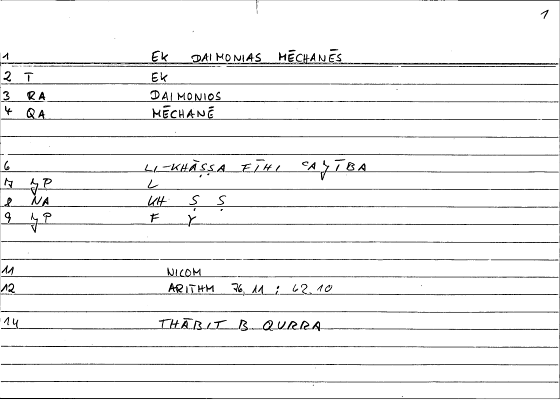 1
1 EK DAIMONIAS MĒCHANĒS
2 T EK
3 RA DAIMONIOS
4 QA MĒCHANĒ
6 LI-KHĀṢṢA FĪHI
7 L
8 NA KH Ṣ Ṣ
9 F Y
11 NICOM
12 ARITHM 76,11 ; 62.10
14 THĀBIT B. QURRA